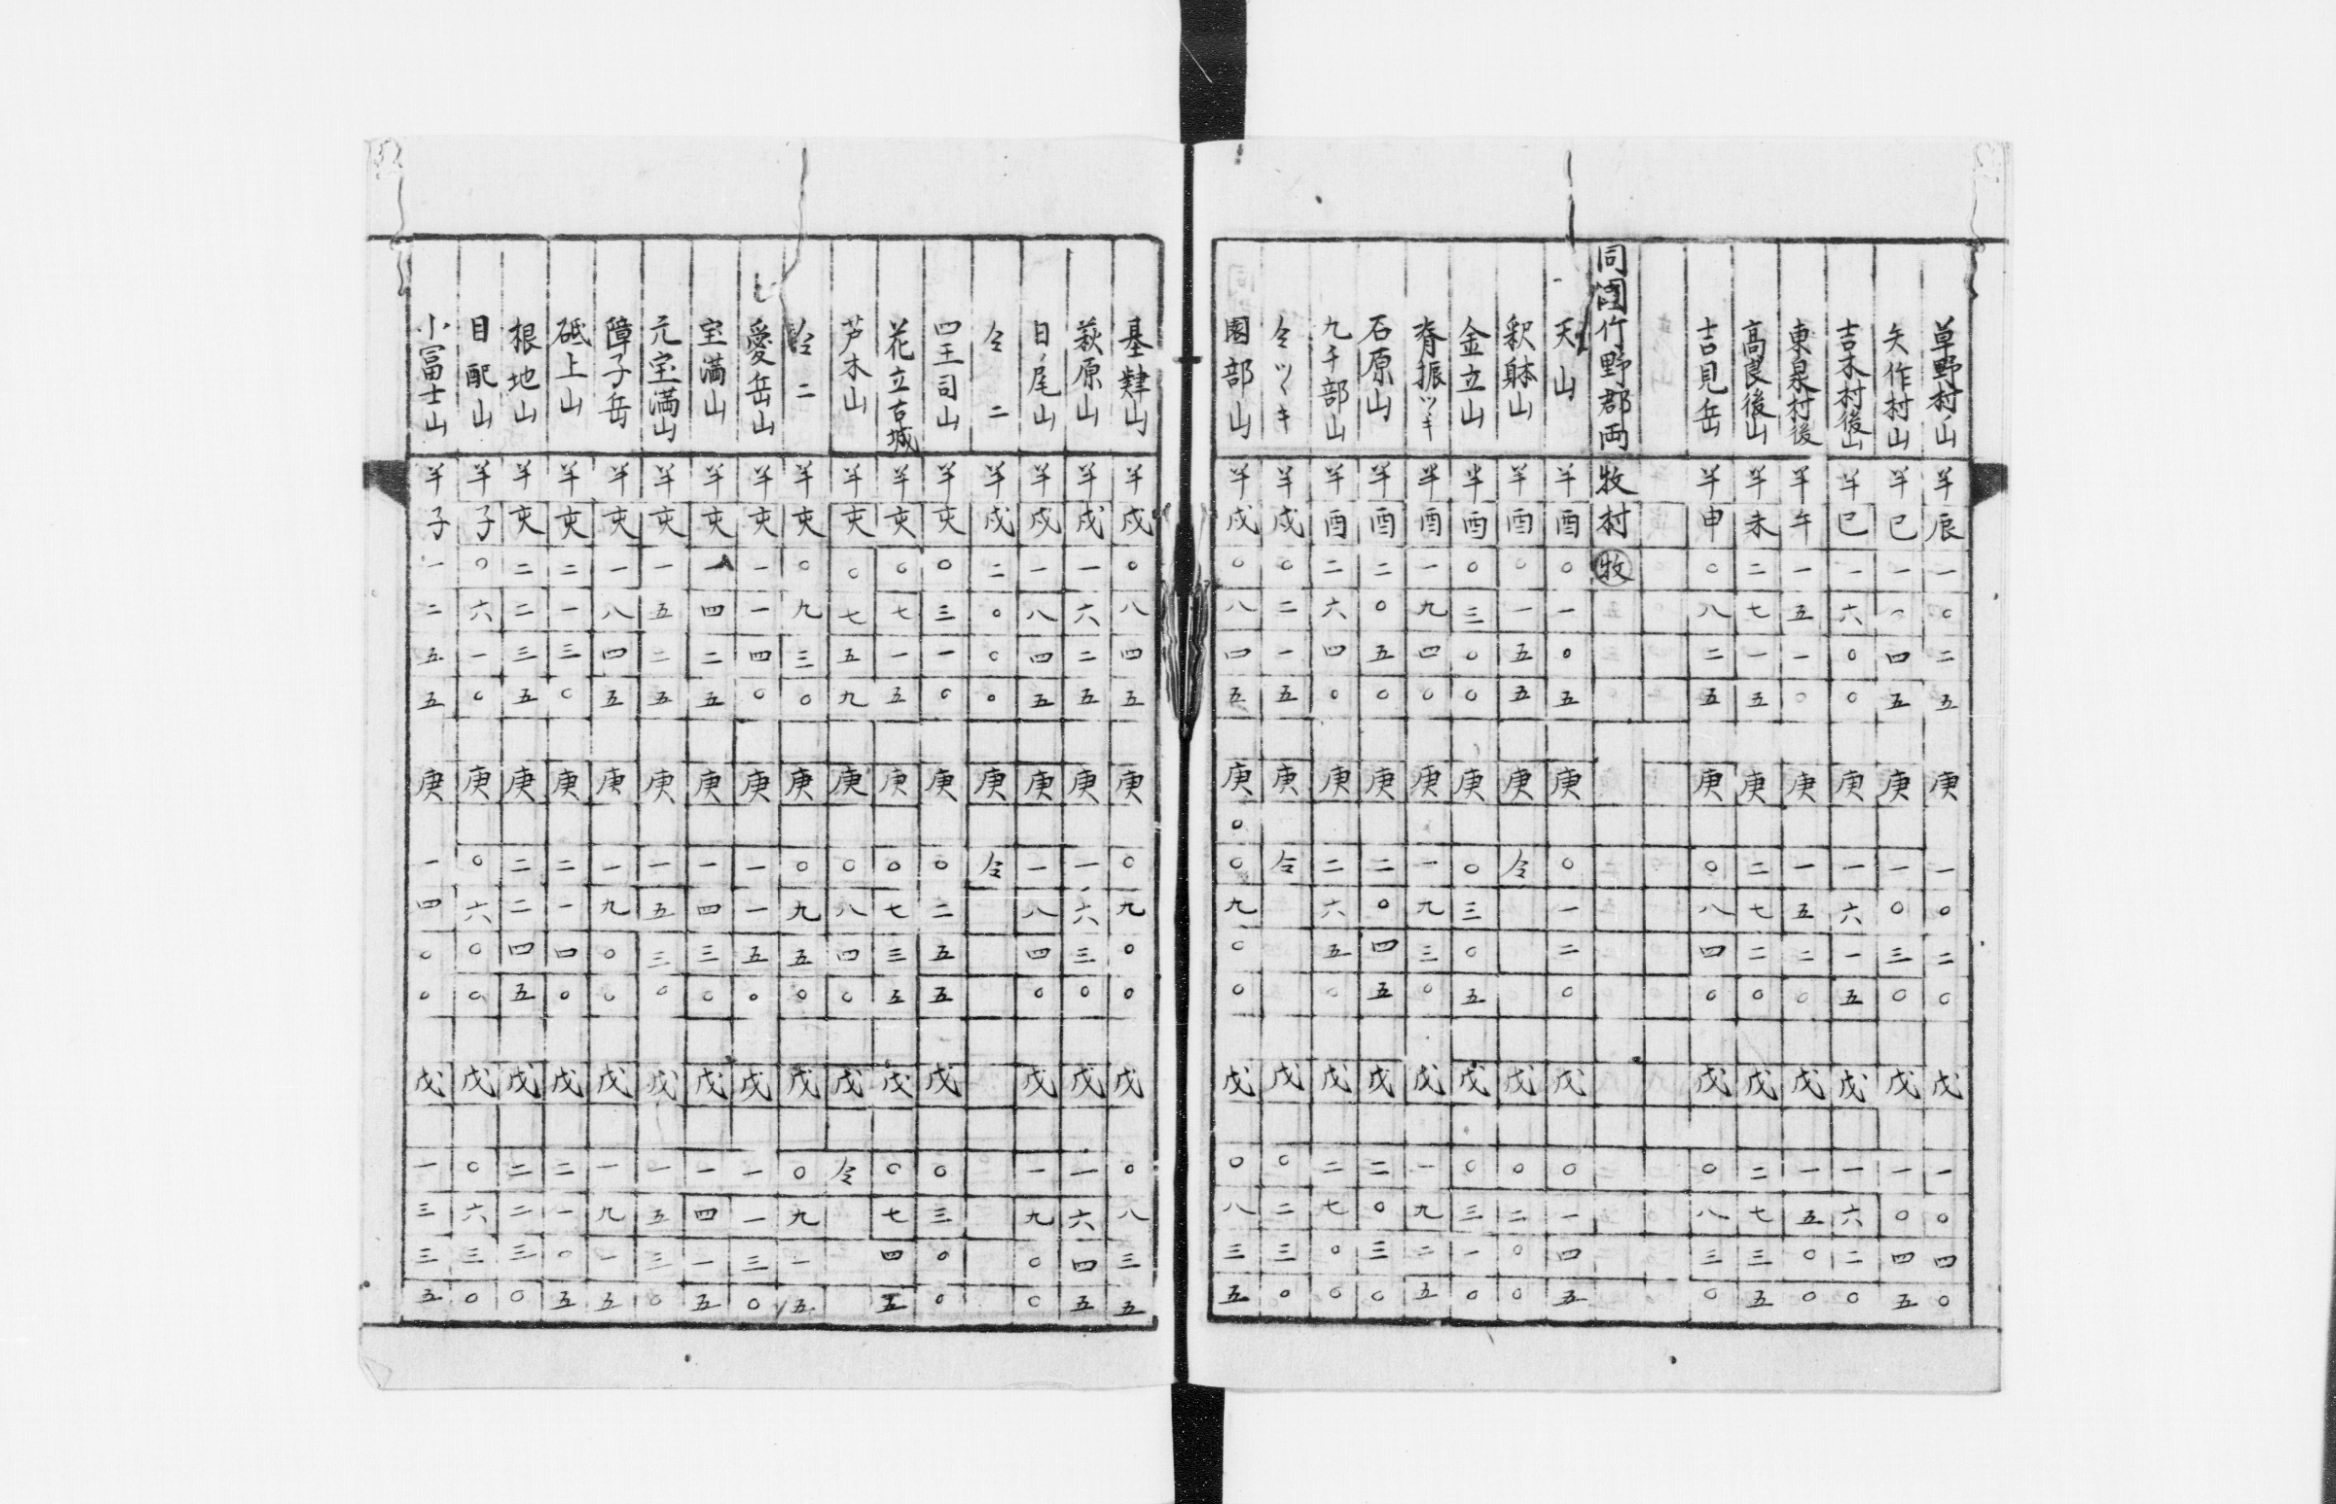 草野村ノ山 半辰 一〇二五 庚 一〇二〇 戊 一〇四〇
矢作村山 半巳 一〇四五 庚 一〇三〇 戊 一〇四五
吉木村後山 半巳 一六〇〇 庚 一六一五 戊 一六二〇
東泉村後 半午 一五一〇 庚 一五二〇 戊 一五〇〇
高良後山 半未 二七一五 庚 二七二〇 戊 二七三五
吉見岳 半申 〇八二五 庚 〇八四〇 戊 〇八三〇
同國竹野郡両牧村 牧
天山 半酉 〇一〇五 庚 〇一二〇 戊 〇一四五
釈躰山 半酉 〇一五五 庚 仝 戊 〇二〇〇
金立山 半酉 〇三〇〇 庚 〇三〇五 戊 〇三一〇
脊振ツヽキ 半酉 一九四〇 庚 一九三〇 戊 一九二五
石原山 半酉 二〇五〇 庚 二〇四五 戊 二〇三〇
九千部山 半酉 二六四〇 庚 二六五〇 戊 二七〇〇
仝ツヽキ 半戌 〇二一五 庚 仝 戊 〇二三〇
園部山 半戌 〇八四五 庚 〇〇九〇〇 戊 〇八三五
基肄山 半戌 〇八四五 庚 〇九〇〇 戊 〇八三五
萩原山 半戌 一六二五 庚 一六三〇 戊 一六四五
日ノ尾山 半戌 一八四五 庚 一八四〇 戊 一九〇〇
仝 二 半戌 二〇〇〇 庚 仝
四王司山 半亥 〇三一〇 庚 〇二五五 戊 〇三〇〇
花立古城 半亥 〇七一五 庚 〇七三五 戊 〇七四五
芦木山 半亥 〇七五九 庚 〇八四〇 戊 仝
仝 二 半亥 〇九三〇 庚 〇九五〇 戊 〇九一五
愛岳山 半亥 一一四〇 庚 一一五〇 戊 一一三〇
宝満山 半亥 一四二五 庚 一四三〇 戊 一四一五
元宝満山 半亥 一五二五 庚 一五三〇 戊 一五三〇
障子岳 半亥 一八四五 庚 一九〇〇 戊 一九一五
砥上山 半亥 二一三〇 庚 二一四〇 戊 二一〇五
根地山 半亥 二二三五 庚 二二四五 戊 二二三〇
目配山 半子 〇六一〇 庚 〇六〇〇 戊 〇六三〇
小冨士山 半子 一二五五 庚 一四〇〇 戊 一三三五